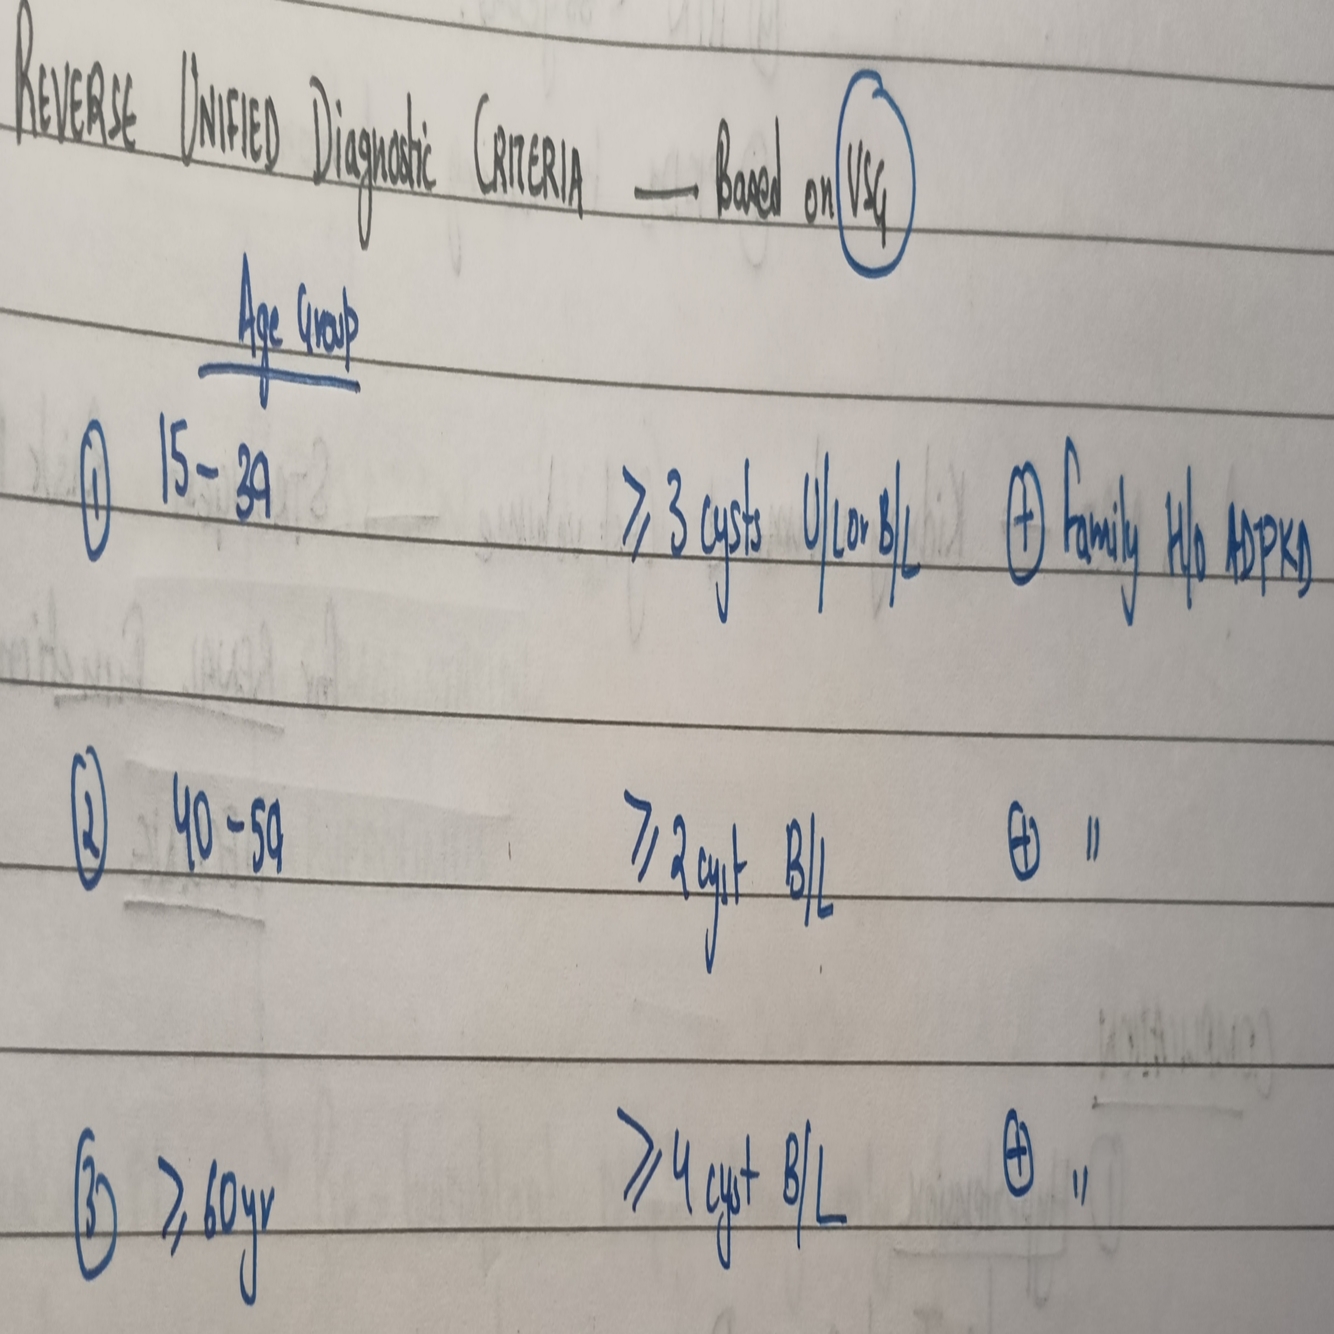 REVERSE UNIFIED Diagnostic CRITERIA — Based on VSG
Age Group
① 15 - 39 ≥ 3 cysts U/L or B/L ⊕ family H/o ADPKD
② 40 - 59 ≥ 2 cyst B/L ⊕ "
③ ≥ 60yr ≥ 4 cyst B/L ⊕ "